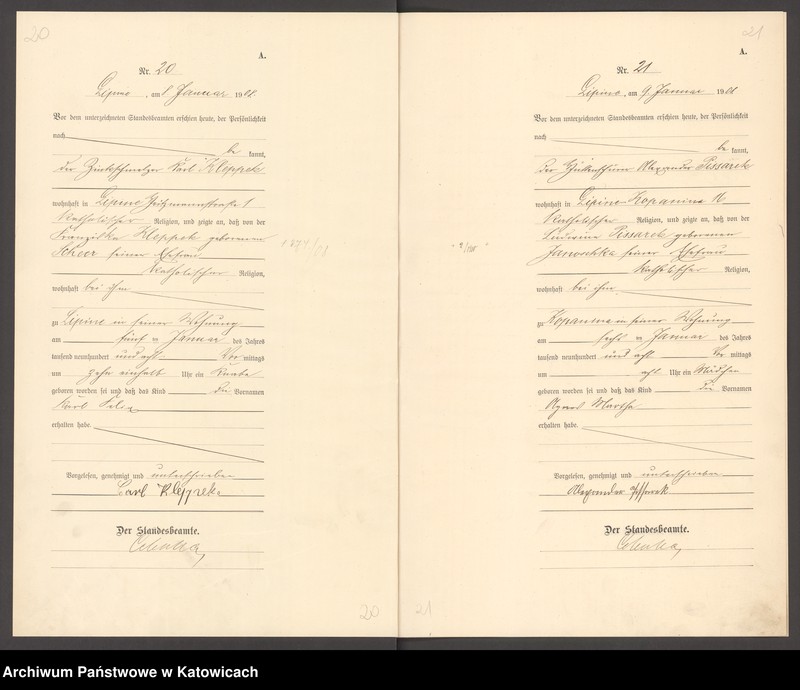 20
A.
Nr. 20
Lipine, am 8 Januar 1908.
Vor dem unterzeichneten Standesbeamten erschien heute, der Persönlichkeit
nach
be kannt,
der Zinkschmelzer Karl Kleppek
wohnhaft in Lipine 1
katholischer Religion, und zeigte an, daß von der
Franziska Kleppek geborenen
seiner Ehefrau
katholischer Religion,
wohnhaft bei ihm
zu Lipine in seiner Wohnung
am fünf ten Januar des Jahres
tausend neunhundert und acht Vor mittags
um zehn einhalb Uhr ein Knabe
geboren worden sei und daß das Kind die Vornamen
Karl Felix
erhalten habe.
Vorgelesen, genehmigt und unterschrieben
Carl Kleppek
Der Standesbeamte.
20
21
A.
Nr. 21
Lipine, am 9. Januar 1908
Vor dem unterzeichneten Standesbeamten erschien heute, der Persönlichkeit
nach
be kannt,
der Alexander Pissarek
wohnhaft in Lipine Kopanina
katholischer Religion, und zeigte an, daß von der
Pissarek geborenen
Janoschka seiner Ehefrau
katholischer Religion,
wohnhaft bei ihm
zu Kopanina in seiner Wohnung
am sechs ten Januar des Jahres
tausend neunhundert und acht Vor mittags
um acht Uhr ein Mädchen
geboren worden sei und daß das Kind die Vornamen
Martha
erhalten habe.
Vorgelesen, genehmigt und unterschrieben
Alexander Pissarek
Der Standesbeamte.
21
Archiwum Państwowe w Katowicach